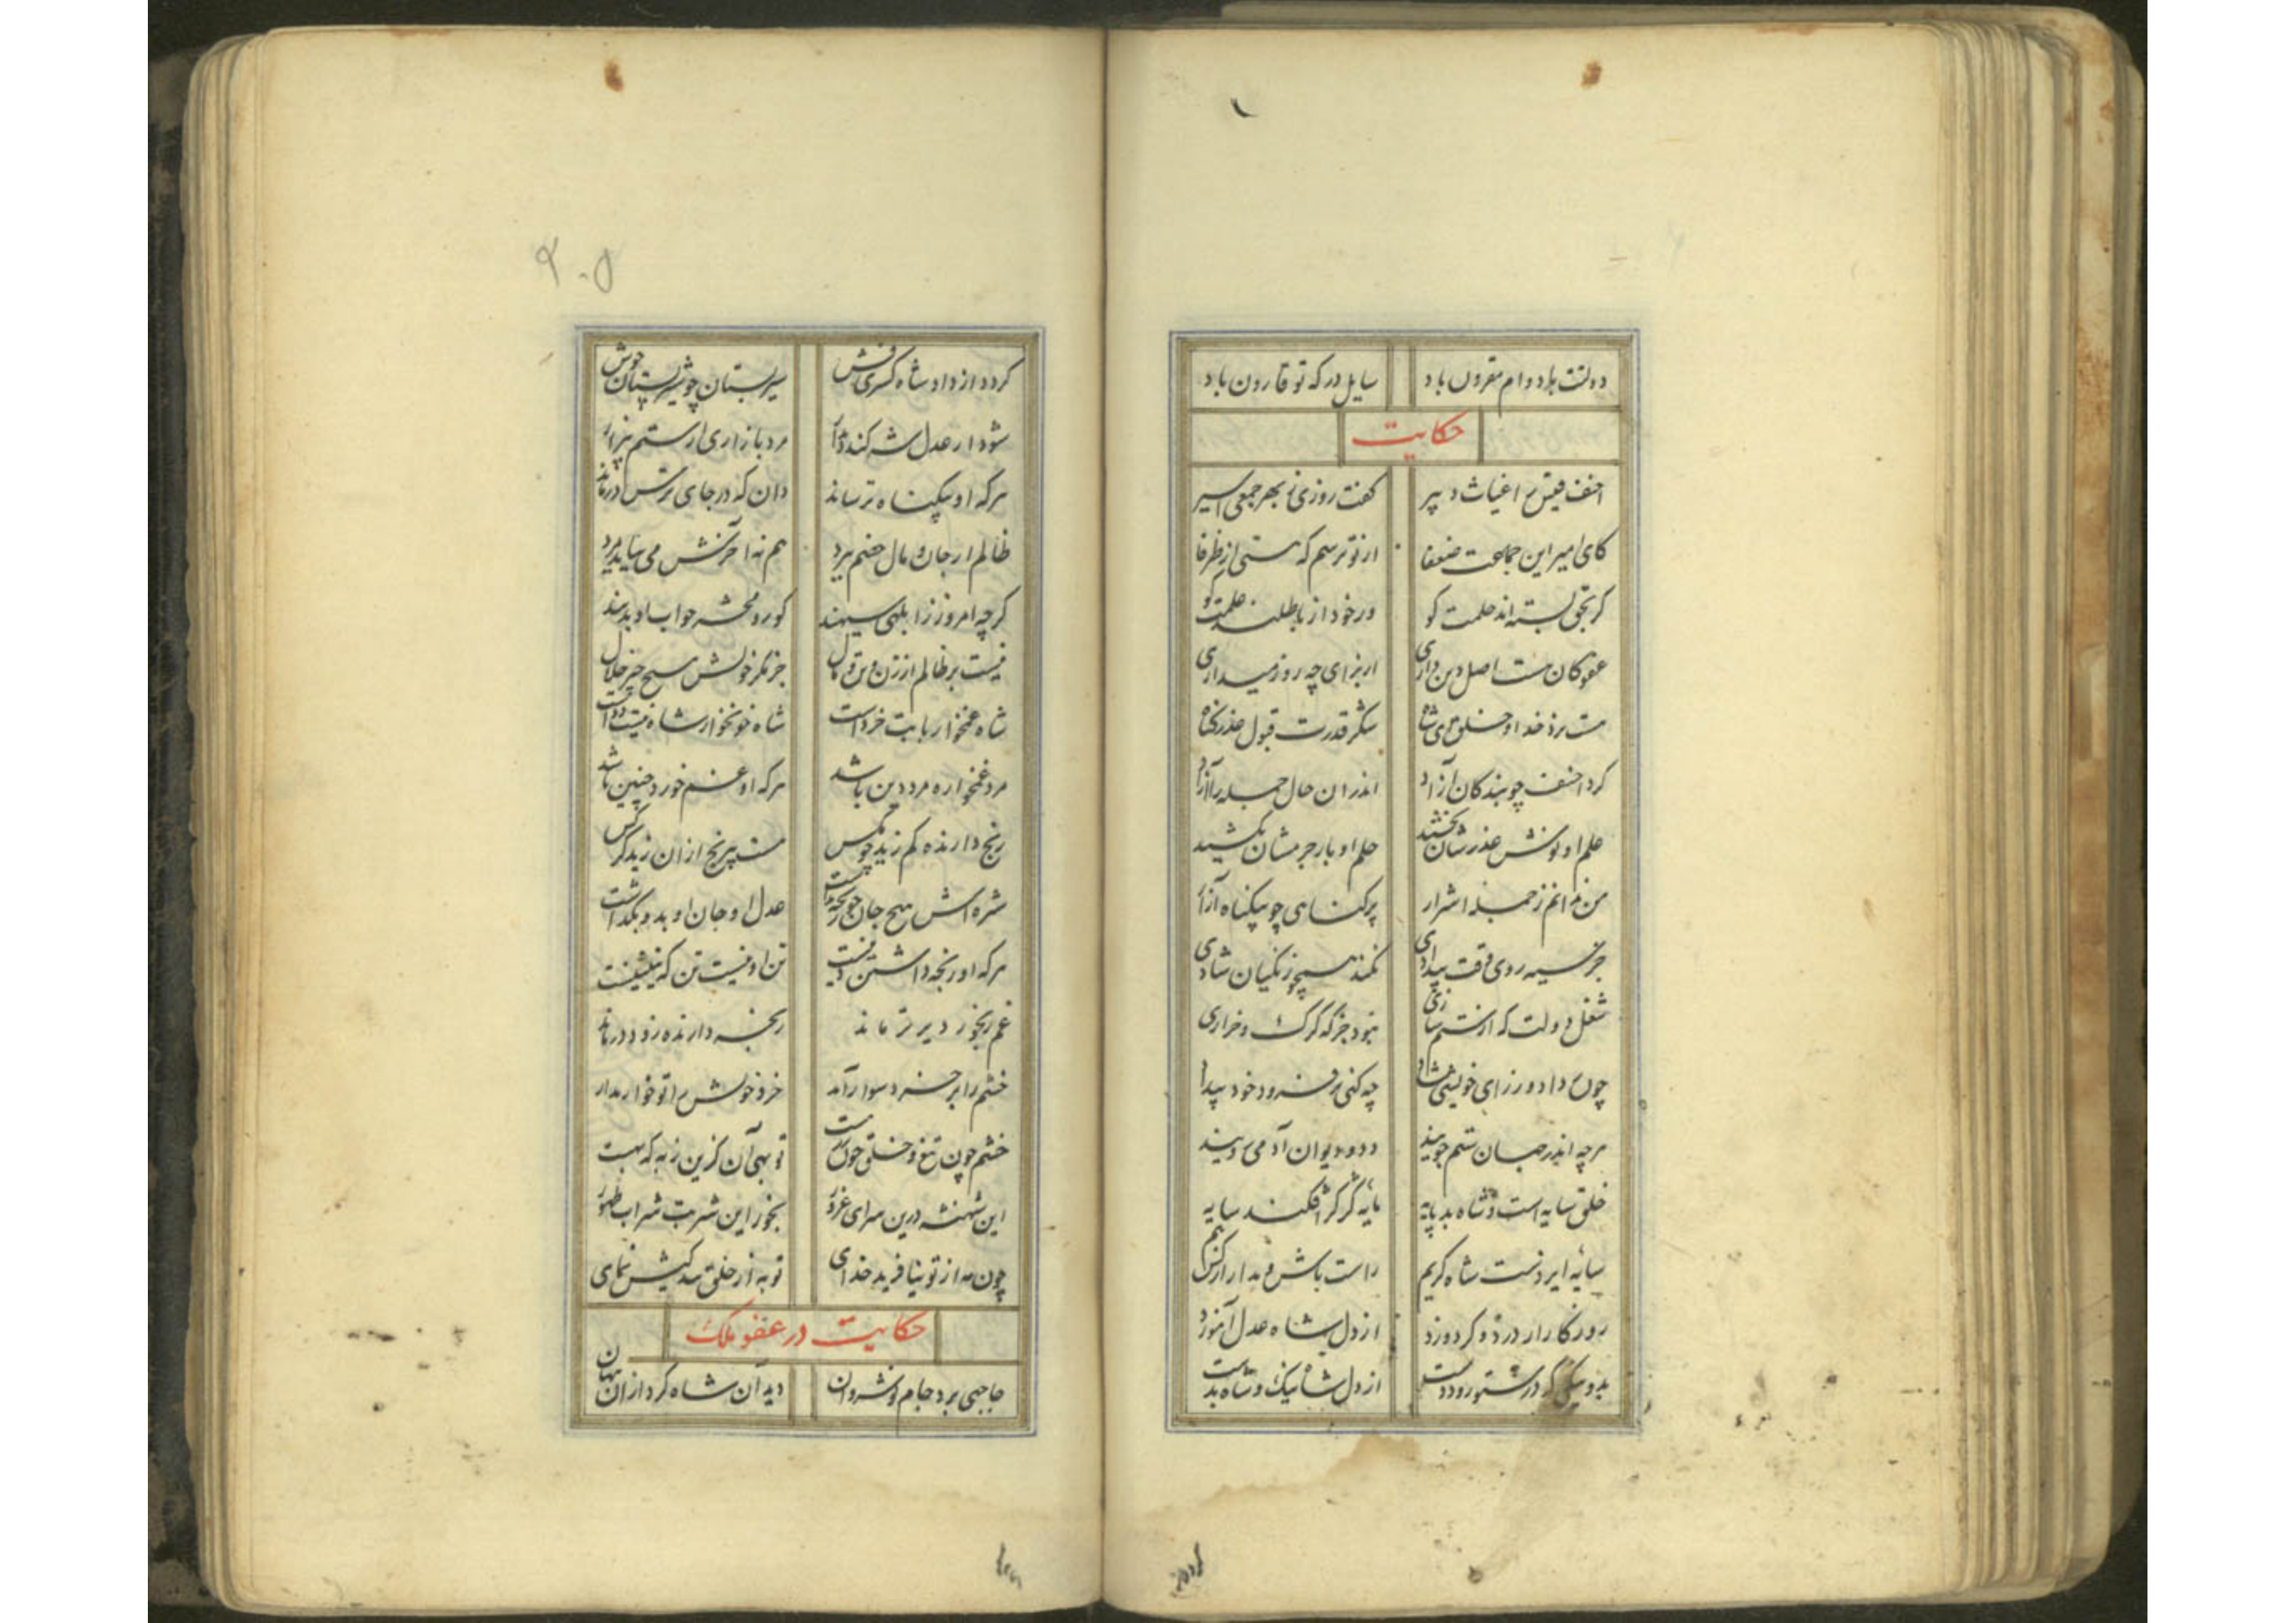 دولتت با دوام مقرون باد سایل درکه تو قارون باد
حکایت
احنف قیس را غیاث دبیر کفت روزی ز بهر جمعی اسیر
کای امیر این جماعت ضعفا ار تو ترسم که هستی از ظرفا
کر بحق بسته اند حلمت کو ور خود از باطلند علمت کو
عفو کان هست اصل دین داری از برای چه روز میداری
هست نزد خدا و خلق ای شاه شکر قدرت قبول عذر کناه
کرد احنف چو بندکان آزاد اندران حال جمله را
علم او نوش عذرشان بخشید حلم او بار جرمشان بکشید
من ندانم ز جمله اشرار پر کناهی چو بیکناه آزار
جز سیه روی وقت بیدادی نکند همچو زنکیان شادی
شغل دولت که از ستم سازی نبود جز که کرک و خرازی
چون داد ورز ای خویشی چه کنی فر و زود خود پیدا
هرچه اندر جهان ستم جویند دد و دیوان آدمی رویند
خلق سایه است و شاه بد پایه پایه کژ کژ افکند سایه
سایه ایزدست شاه کریم راست باش و مدار از کس بیم
روزکار ار درد و کر دوزد از دل شاه عدل آموزد
بد و نیکی کز درستور و ددست از دل شاه نیک و شاه بدست
۲۰۵
کردد از داد شاه کسری فش سیر بستان چو شیر پستان خوش
شود ار عدل شه کند مرد بازاری از ستم بیزار
هرکه او بیکناه ترساند دان که در جای ترس درماند
ظالم ار جان و مال خصم ببرد هم نه آخرش می بباید مرد
کرچه امروز ز ابلهی سیهند کور و محشر جواب او بدهند
نیست بر ظالم از زن و زر و مال جز مکر خویش هیچ چیز حلال
شاه غمخوار بابت خردست شاه خونخوار شاه نیست ددست
مرد غمخواره مرد دین باشد هرکه او غم خورد چنین باشد
رنج دارنده کم زید چو مکس هست بیرنج از آن زید کرکس
شره اش هیچ جان چو رنجه نداشت عدل او جان او بدو بکذاشت
هرکه او رنجه داشتن دینست تن او نیست تن که
غم رنجور دیرتر ماند رنجه دارنده زود درماند
خشم را بر خرد سوار مدار خرد خویش را تو خوار مدار
خشم چون تیغ و خلق چون تو بهی آن کزین زره که بهست
این شهنشه درین سرای غرور بخور این شربت شراب طهور
چون مه از تو نیافرید خدای تو به از خلق بندکیش نمای
حکایت در عفو ملک
حاجبی برد جام نوشروان دید آن شاه کرد از آن پنهان